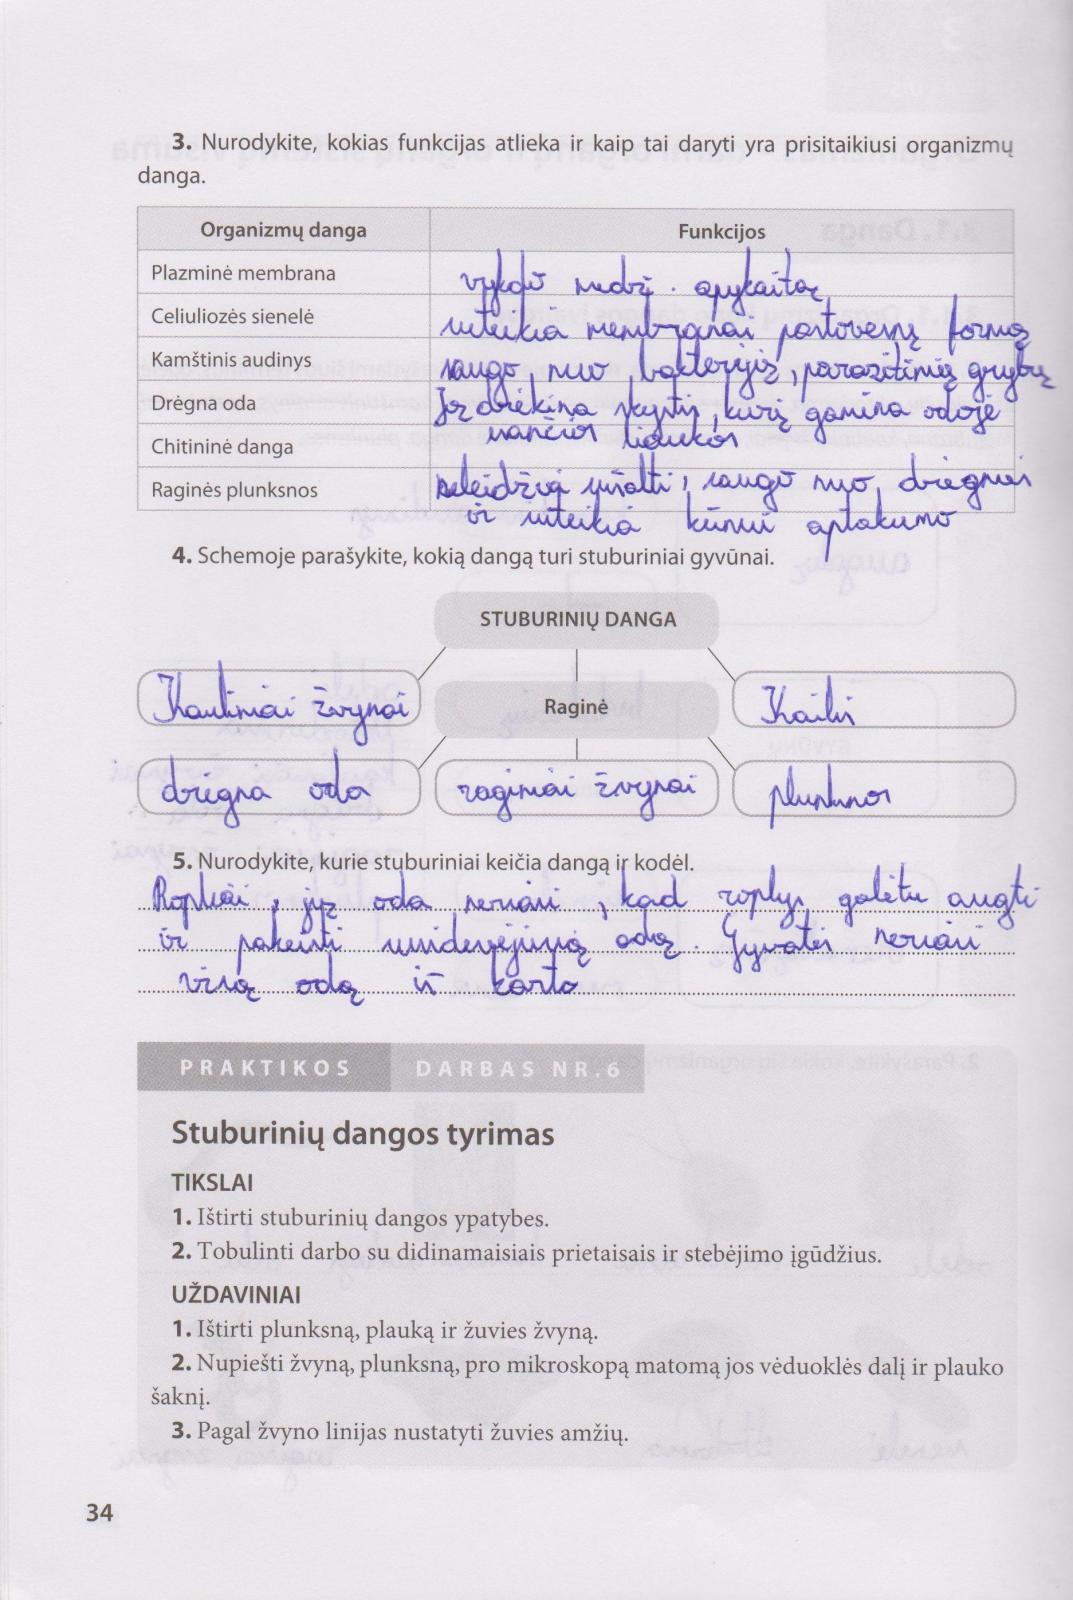 3. Nurodykite, kokias funkcijas atlieka ir kaip tai daryti yra prisitaikiusi organizmų
danga.
Organizmų danga Funkcijos
Plazminė membrana vykdo medž. apykaitą
Celiuliozės sienelė suteikia membranai pastovesnę formą
Kamštinis audinys saugo nuo bakterijų, parazitinių grybų
Drėgna oda Ją drėkina skystis, kurį gamina odoje
Chitininė danga esančios liaukos
Raginės plunksnos neleidžia sušalti, saugo nuo drėgmės
ir suteikia kūnui aptakumo
4. Schemoje parašykite, kokią dangą turi stuburiniai gyvūnai.
STUBURINIŲ DANGA
Kauliniai žvynai Raginė Kailis
drėgna oda raginiai žvynai plunksnos
5. Nurodykite, kurie stuburiniai keičia dangą ir kodėl.
Ropliai, jų oda neriasi, kad roplys galėtu augti
ir pakeisti nusidėvėjusią odą. Gyvatės neriasi
visą odą iš karto
PRAKTIKOS DARBAS NR.6
Stuburinių dangos tyrimas
TIKSLAI
1. Ištirti stuburinių dangos ypatybes.
2. Tobulinti darbo su didinamaisiais prietaisais ir stebėjimo įgūdžius.
UŽDAVINIAI
1. Ištirti plunksną, plauką ir žuvies žvyną.
2. Nupiešti žvyną, plunksną, pro mikroskopą matomą jos vėduoklės dalį ir plauko
šaknį.
3. Pagal žvyno linijas nustatyti žuvies amžių.
34